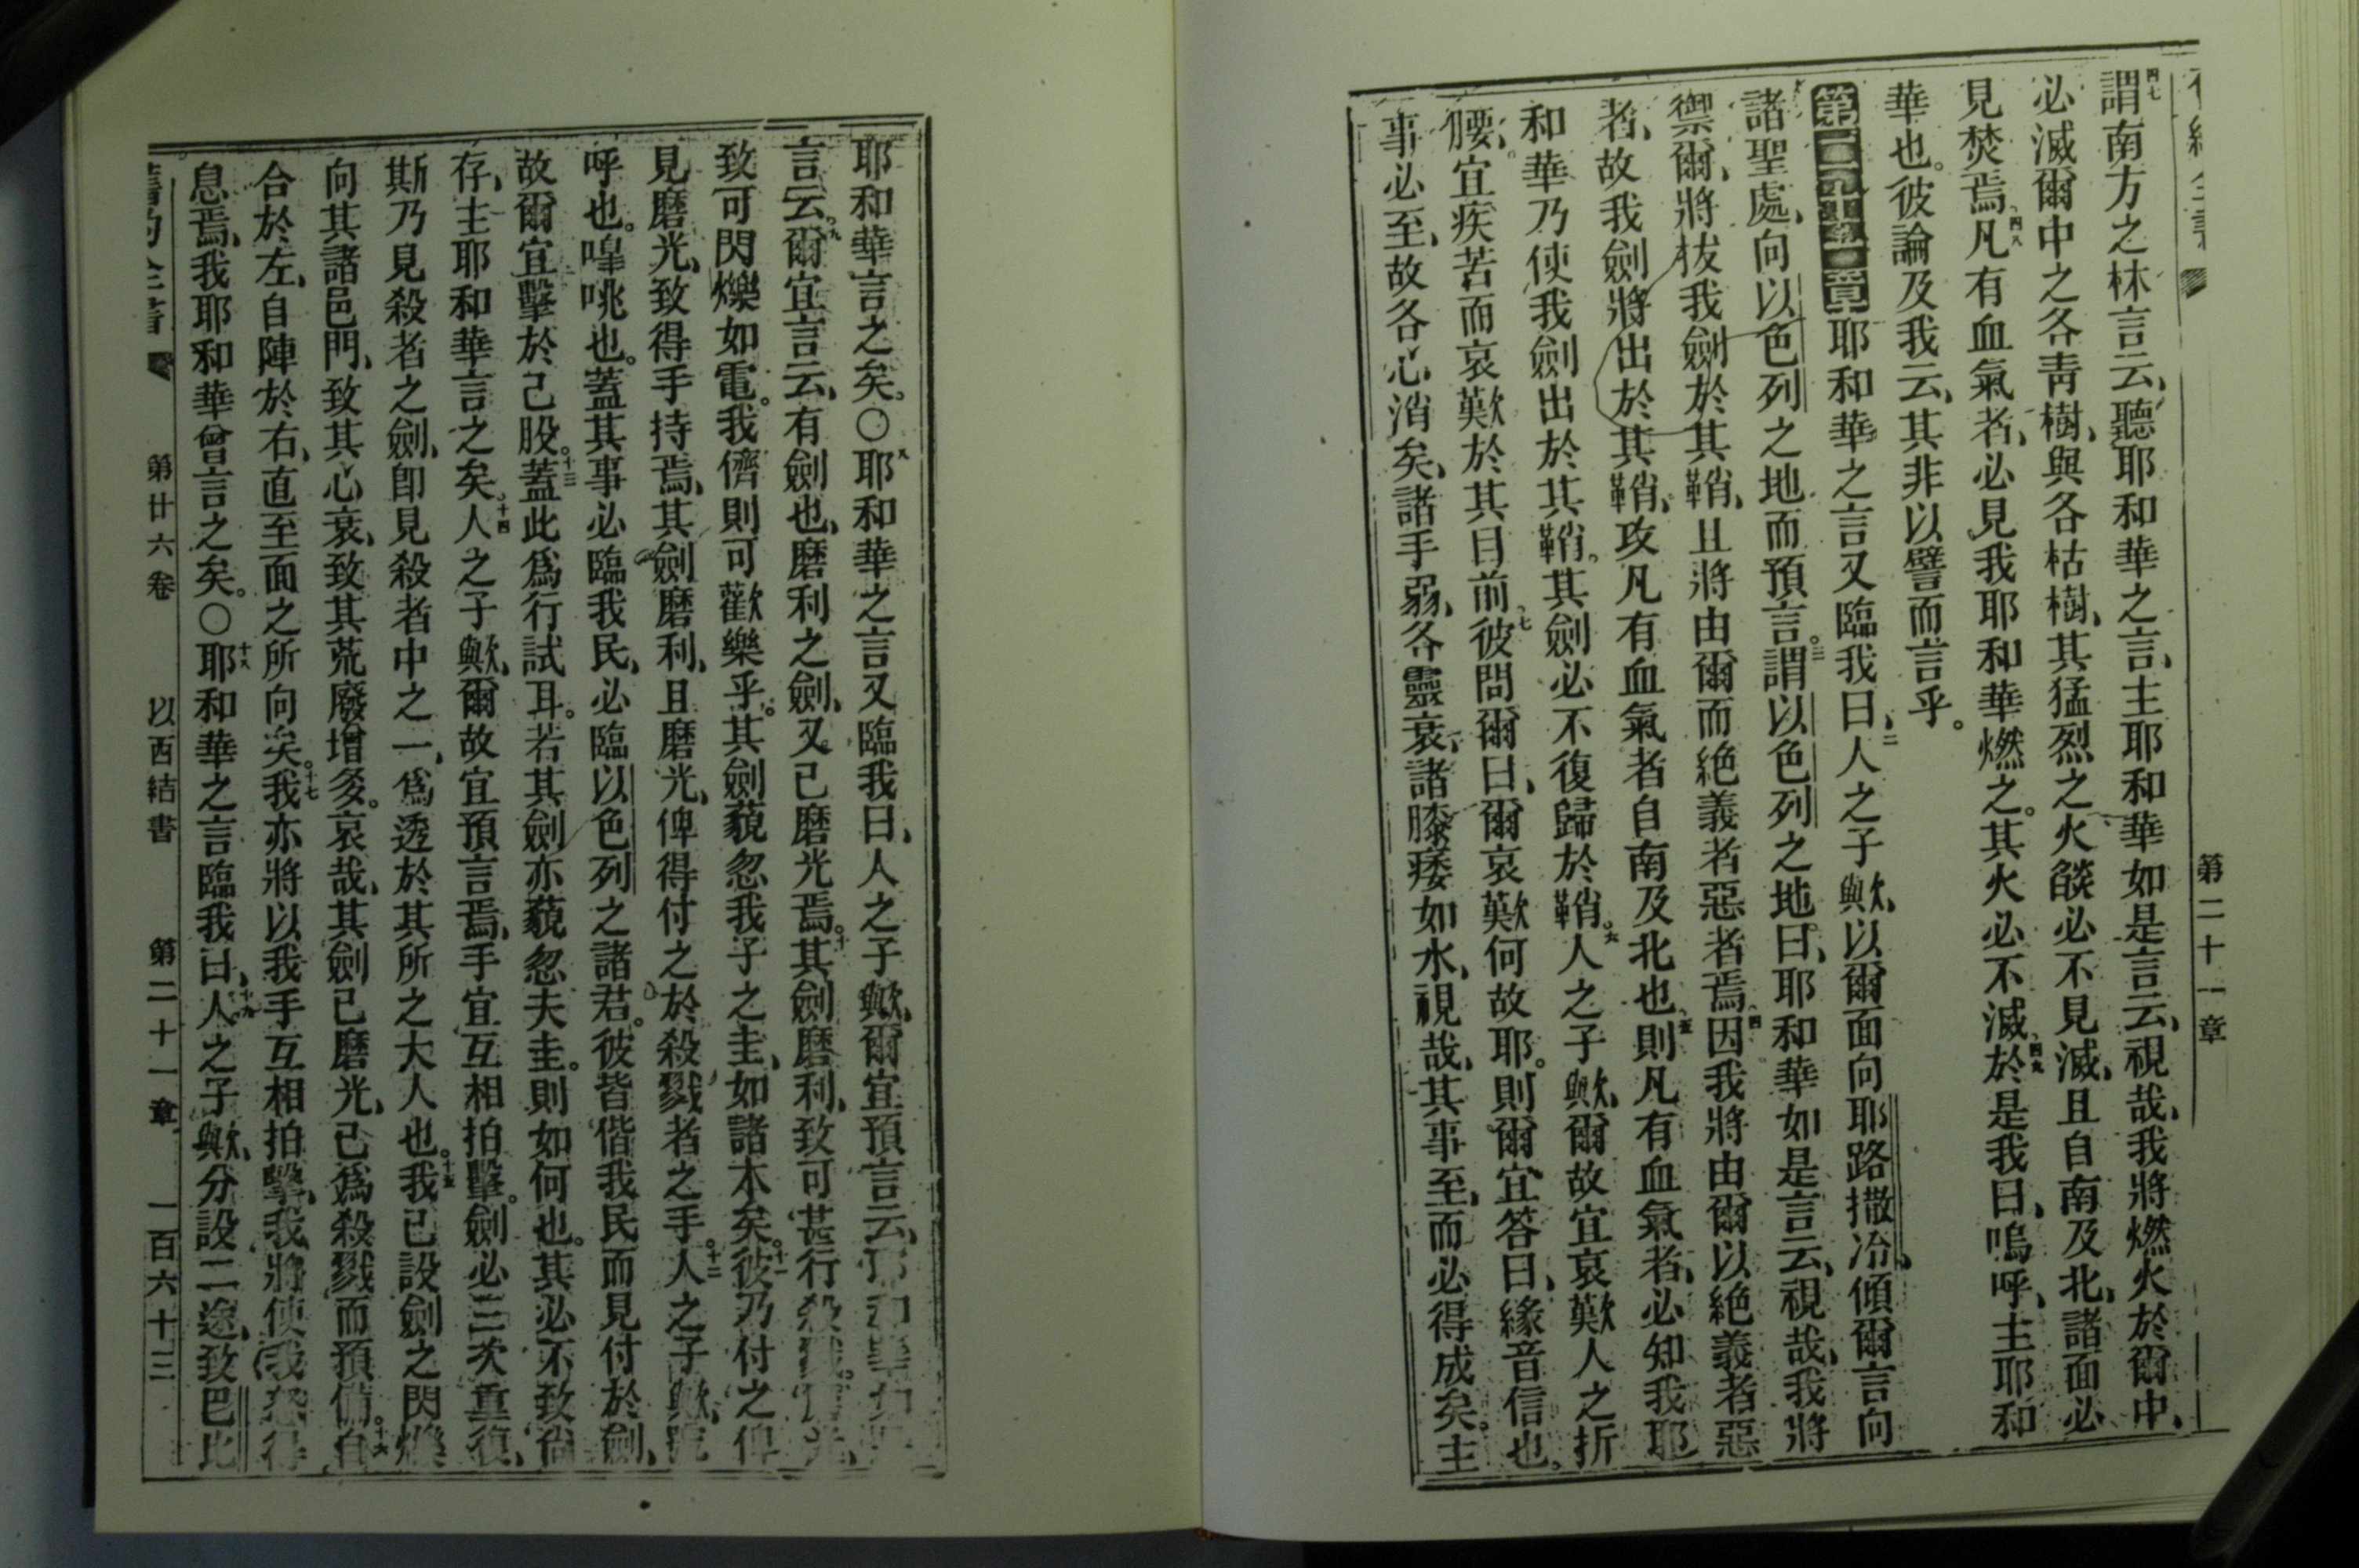 第二十一章
四七謂南方之林言云、聽耶和華之言、主耶和華如是言云、視哉、我將燃火於爾中、
必滅爾中之各靑樹、與各枯樹、其猛烈之火燄必不見滅、且自南及北、諸面必
見焚焉、四八凡有血氣者、必見我耶和華燃之。其火必不滅、四九於是我曰、嗚呼、主耶和
華也。彼論及我云、其非以譬而言乎。
第二十一章耶和華之言又臨我曰、二人之子歟、以爾面向耶路撒冷、傾爾言向
諸聖處、向以色列之地而預言。三謂以色列之地曰、耶和華如是言云、視哉、我將
禦爾、將拔我劍於其鞘、且將由爾而絕義者惡者焉、四因我將由爾以絕義者惡
者、故我劍將出於其鞘、攻凡有血氣者自南及北也、五則凡有血氣者、必知我耶
和華乃使我劍出於其鞘。其劍必不復歸於鞘。六人之子歟、爾故宜哀歎人之折
腰、宜疾苦而哀歎於其目前、七彼問爾曰、爾哀歎何故耶。則爾宜答曰、緣音信也、
事必至、故各心消矣、諸手弱、各靈衰、諸膝痿如水、視哉、其事至、而必得成矣。主
耶和華言之矣。〇八耶和華之言又臨我曰、人之子歟、爾宜預言云、耶和華如
言云、九爾宜言云、有劍也、磨利之劍、又已磨光焉。十其劍磨利、致可甚行殺
致可閃爍如電。我儕則可歡樂乎。其劍藐忽我子之圭、如諸木矣。十一彼乃付之俾
見磨光、致得手持焉、其劍磨利、且磨光、俾得付之於殺戮者之手。十二人之子歟、
呼也。嘷咷也。蓋其事必臨我民、必臨以色列之諸君。彼皆偕我民而見付於劍、
故爾宜擊於己股。十三蓋此爲行試耳。若其劍亦藐忽夫圭。則如何也。其必不致尙
存、主耶和華言之矣。十四人之子歟、爾故宜預言焉、手宜互相拍擊。劍必三次重復、
斯乃見殺者之劍、卽見殺者中之一、爲透於其所之大人也。十五我已設劍之閃爍
向其諸邑門、致其心衰、致其荒廢增多。哀哉、其劍已磨光、已爲殺戮而預備。十六自
合於左、自陣於右、直至面之所向矣。十七我亦將以我手互相拍擊、我將使我怒得
息焉、我耶和華曾言之矣。〇十八耶和華之言臨我曰、十九人之子歟、分設二途、致巴比
第廿六卷 以西結書 第二十一章 一百六十三